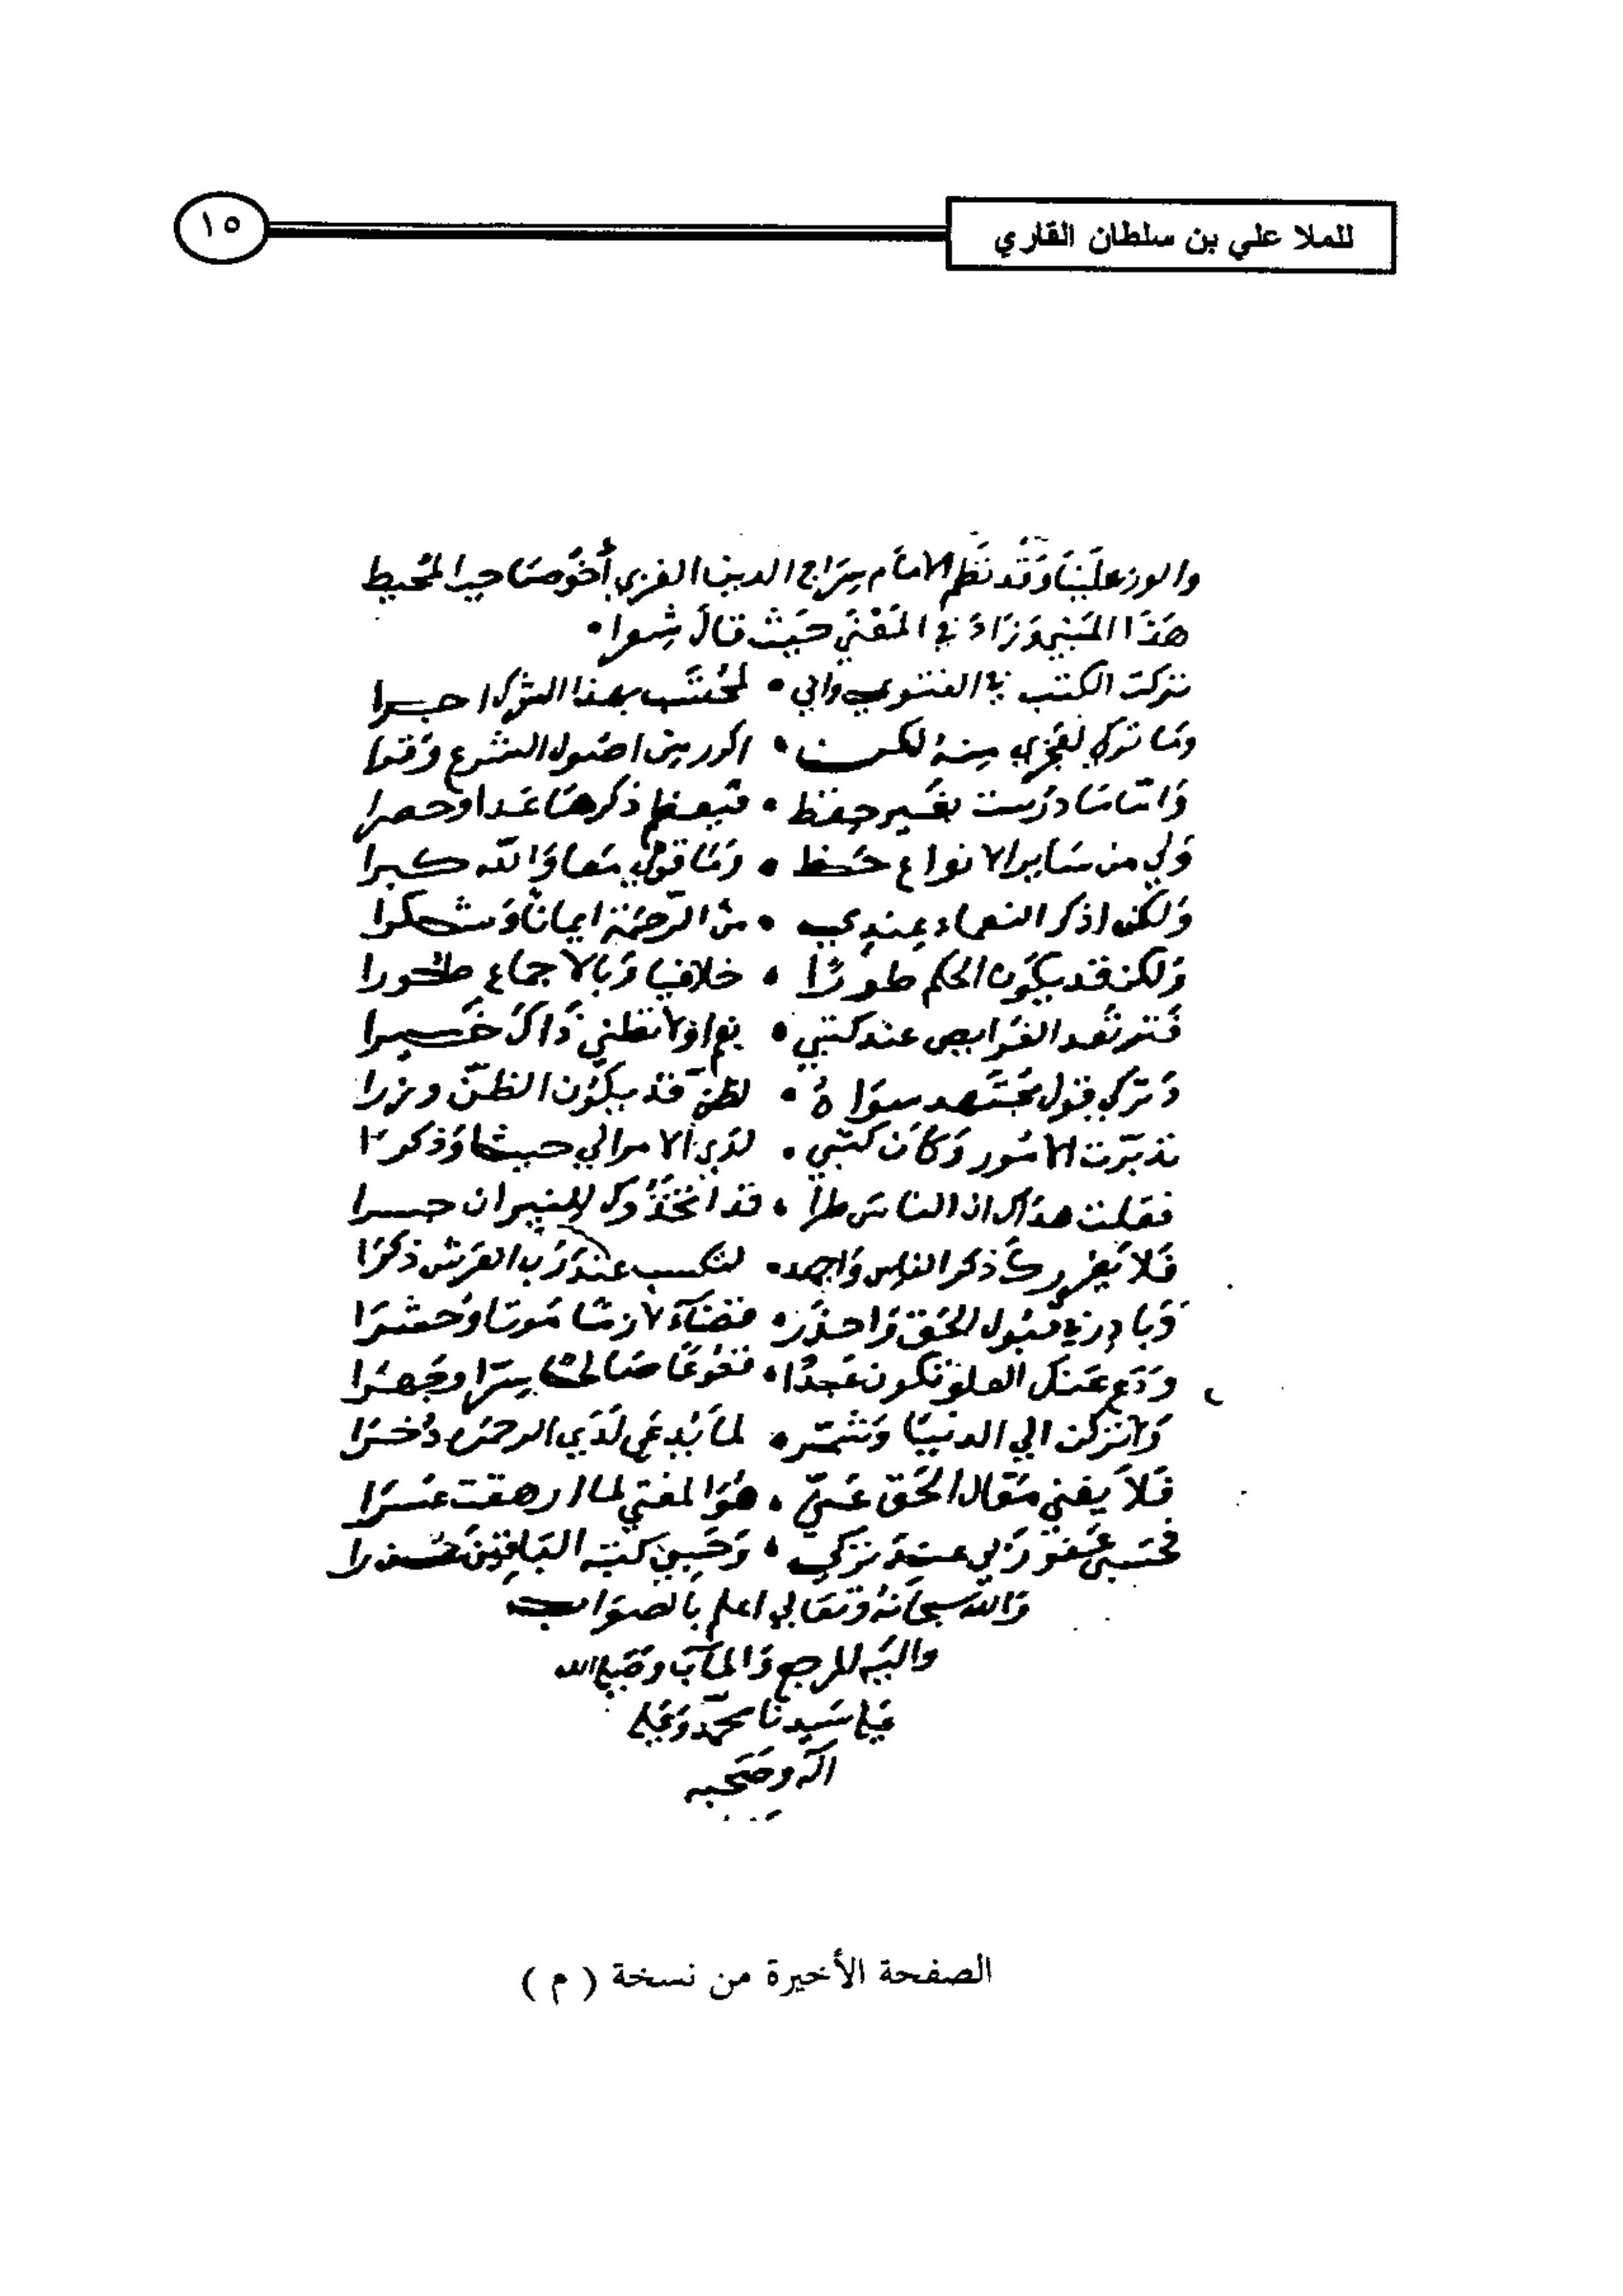 للملا علي بن سلطان القاري
١٥
والوزر علينا وقد نظم الامام سراج الدين الغزي أخو صاحب المحيط
هذا المبني وزاد في المعني حيث قال شعرا
تركت الكتب في الفتوي واني • لمحتسب بهذا الترك اجرا
وما تركي لعجزي منه لكن • اكررمن اصول الشرع وقرا
واتا ما درست بغير حفظ • فيعظم ذكرها عدا وحصرا
ولي من ساير الانواع حظ • وما قولي معاوالله كبرا
ولكن اذكر النعماء عندي • من الرحمن ايمانا وشكرا
ولكن قد يكون الحكم طورا • خلافيا وبالاجماع طورا
فترتعد الفرايص عند كتبي • نعم اولا تظني ذاك خيرا
وتركي قول مجتهد سواه • لظن قد يكون الظن وزرا
تدبرت الامور وكان كتبي • لدي الامرالي حيثا وذكرا
فقلت هداك ان الناس طرا • قد اتخذوك للنيران جسرا
فلا يغررك ذكر الناس واجهد • لتكسب عند رب العرش ذكرا
وبادر في قبول الحق واحذر • قضاء لازما موتا وحشرا
ودع عنك العلو تكون عبدا • تقوعا صالحا سرا وجهرا
ولا تركن الي الدنيا وشمر • لما يدعي لدي الرحمن ذخرا
فلا يغني مقال الحق عني • هو المفتي لما ارهقت عسرا
فحسبي عفو ربي عند تركي • وحسبي كتبه الباقين عذرا
والله سبحانه وتعالي اعلم بالصواب
واليه المرجع والمآب وصلي الله
علي سيدنا محمد وعلي
اله وصحبه
الصفحة الأخيرة من نسخة ( م )